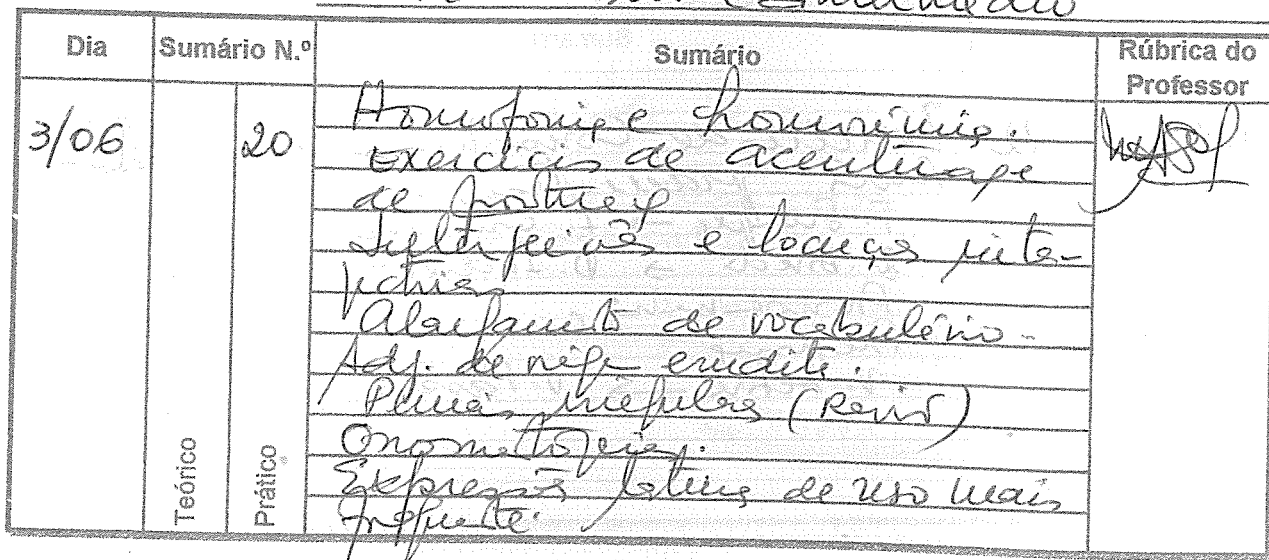 Intermédio
Dia Sumário N.º Sumário Rúbrica do Professor
3/06 20 Homofonia e homonímia.
Exercícios de acentuação
de
Interjeições e locuções inter-
jectivas
Alargamento de vocabulário.
Adj. de origem erudita.
Plurais irregulares (Revisão)
Onomatopeias.
Expressões latinas de uso mais
frequente.
Teórico
Prático